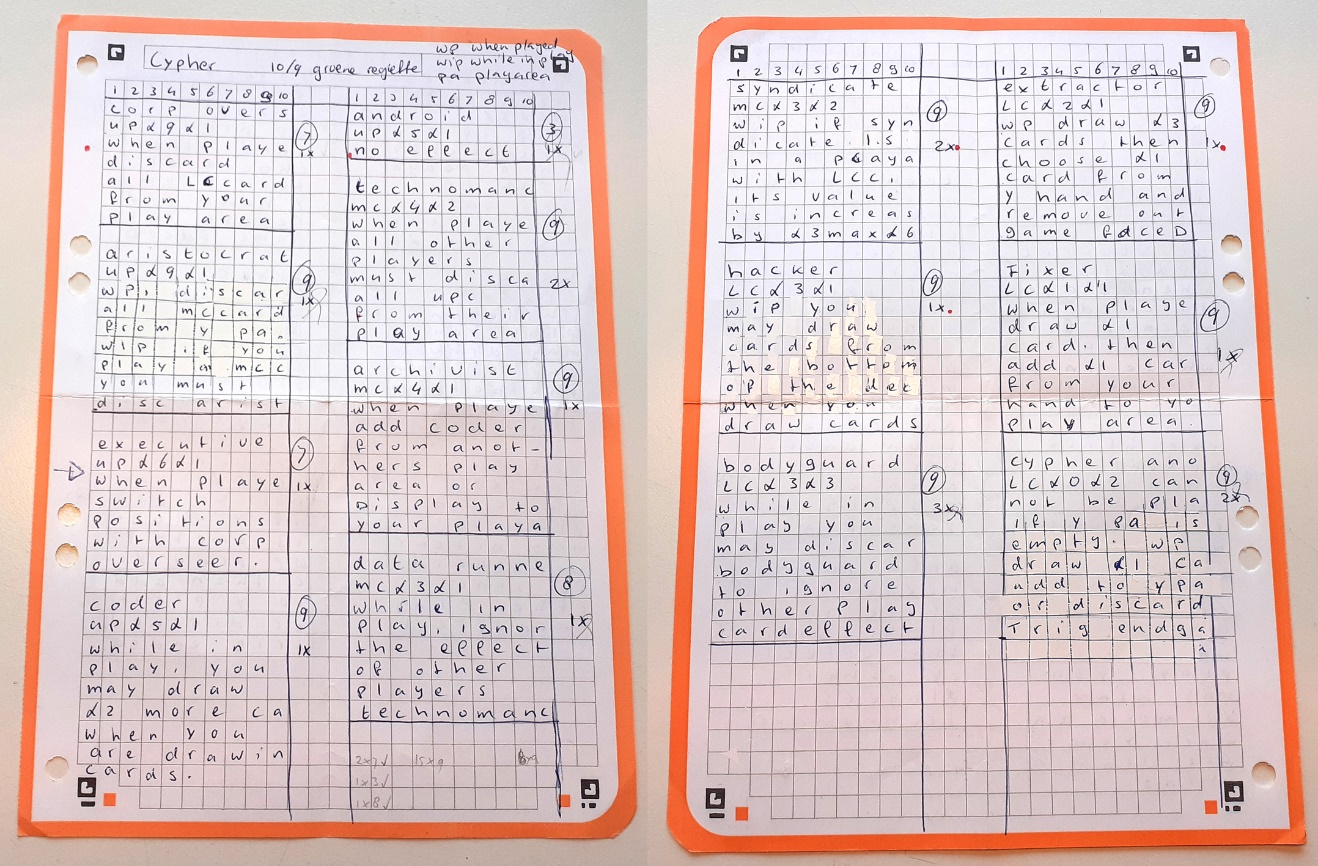 Cypher 10/9 groene regiette
wp when played
wip while in play
pa playarea
1 2 3 4 5 6 7 8 9 10
corp overs
up α9α1
when playe
discard
all LCcard
from your
play area
7
1x
aristocrat
up α9α1
wp, discar
all mccard
from y pa.
wip if you
play a mcc
you must
disc arist
9
1x
executive
up α6α1
when playe
switch
positions
with corp
overseer.
7
1x
coder
up α5α1
while in
play, you
may draw
α2 more ca
when you
are drawin
cards.
9
1x
1 2 3 4 5 6 7 8 9 10
android
up α5α1
no effect
3
1x
technomanc
mcα4α2
when playe
all other
players
must disca
all upc
from their
play area
9
2x
archivist
mcα4α1
when playe
add coder
from anot-
hers play
area or
Display to
your playa
9
1x
data runne
mcα3α1
while in
play, ignor
the effect
of other
players
technomanc
8
1x
2x7✓ 15x9
1x3✓
1x8✓
1 2 3 4 5 6 7 8 9 10
syndicate
mcα3α2
wip if syn
dicate .i.s.
in a playa
with LCC,
its value
is increas
by α3maxα6
9
2x
hacker
LCα3α1
wip you
may draw
cards from
the bottom
of the dec
when you
draw cards
9
1x
bodyguard
LCα3α3
while in
play you
may discar
bodyguard
to ignore
other play
cardeffect
9
3x
1 2 3 4 5 6 7 8 9 10
extractor
LCα2α1
wp draw α3
cards then
choose α1
card from
y hand and
remove out
game faceD
9
1x
Fixer
LCα1α1
when playe
draw α1
card. then
add α1 car
from your
hand to yo
play area.
9
1x
cypher ano
LCα0α2 can
not be pla
if y pa is
empty. wp
draw α1 ca
add to ypa
or discard
Trig endga
9
2x